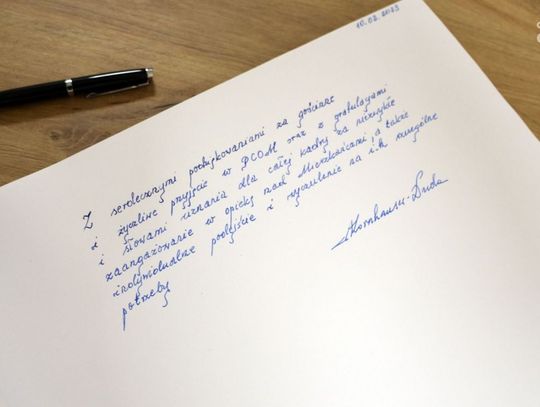 10.02.2023
Z serdecznymi podziękowaniami za gościnne
i życzliwe przyjęcie w PCOM oraz z gratulacjami
i słowami uznania dla całej kadry za niezwykłe
zaangażowanie w opiekę nad Mieszkańcami, a także
indywidualne podejście i wyczulenie na ich szczególne
potrzeby
AKornhauser-Duda